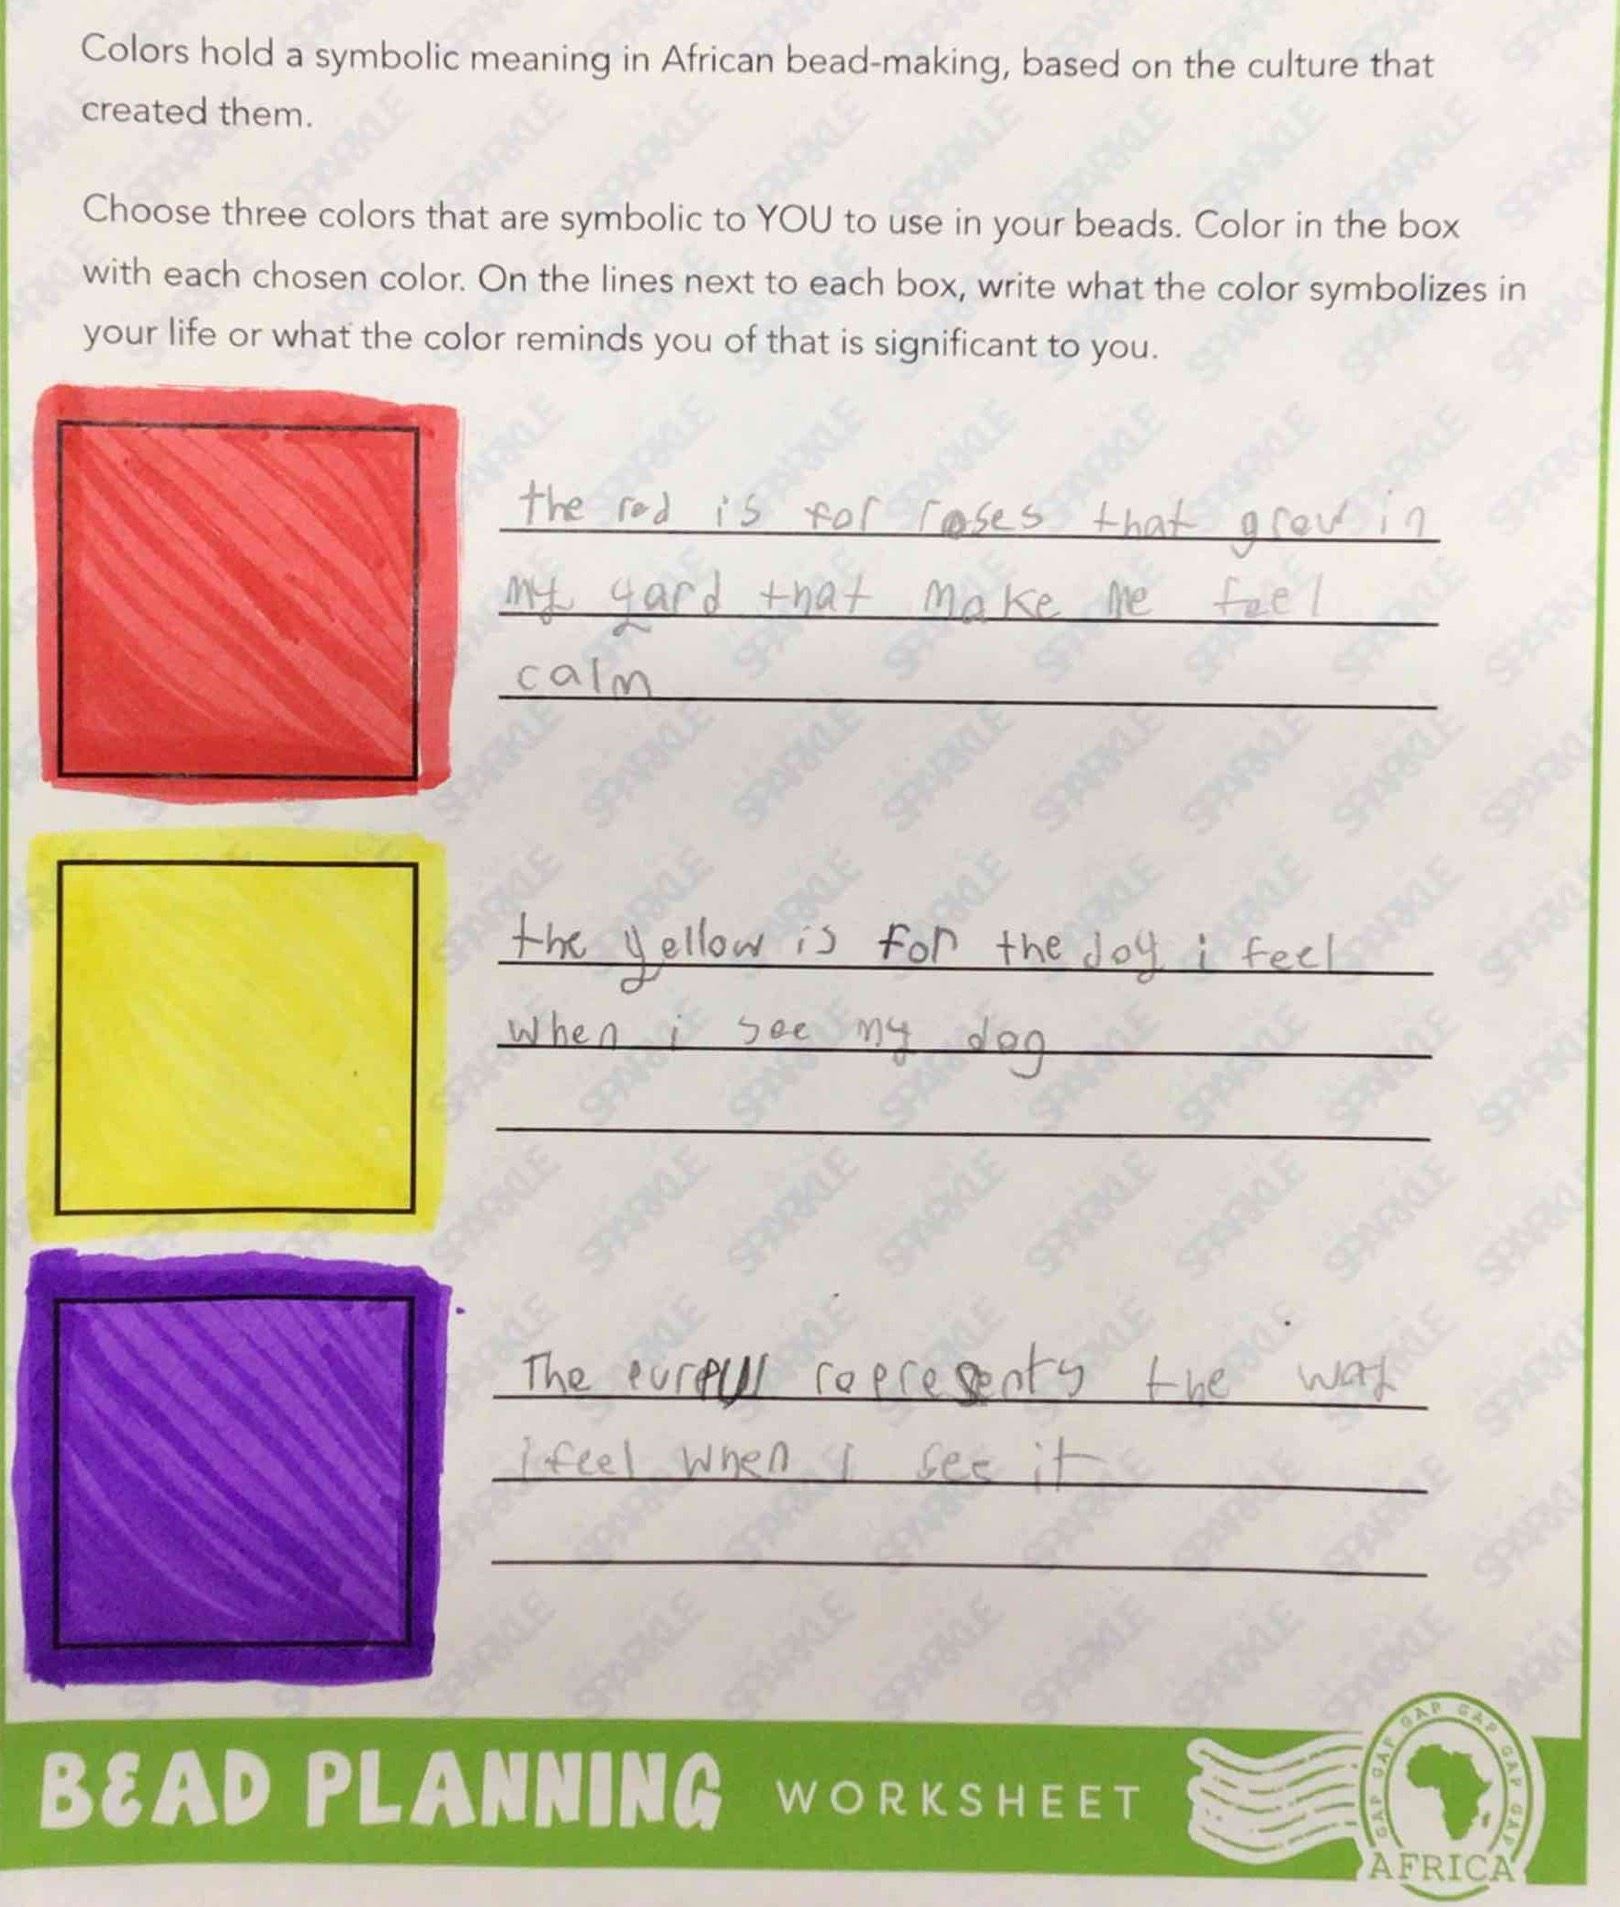 Colors hold a symbolic meaning in African bead-making, based on the culture that
created them.
Choose three colors that are symbolic to YOU to use in your beads. Color in the box
with each chosen color. On the lines next to each box, write what the color symbolizes in
your life or what the color reminds you of that is significant to you.
the red is for roses that grew in
my yard that make me feel
calm
the yellow is for the joy i feel
when i see my dog
The represents the way
i feel when I see it
BEAD PLANNING WORKSHEET
GAP GAP GAP GAP GAP GAP GAP
AFRICA
SPARKLE